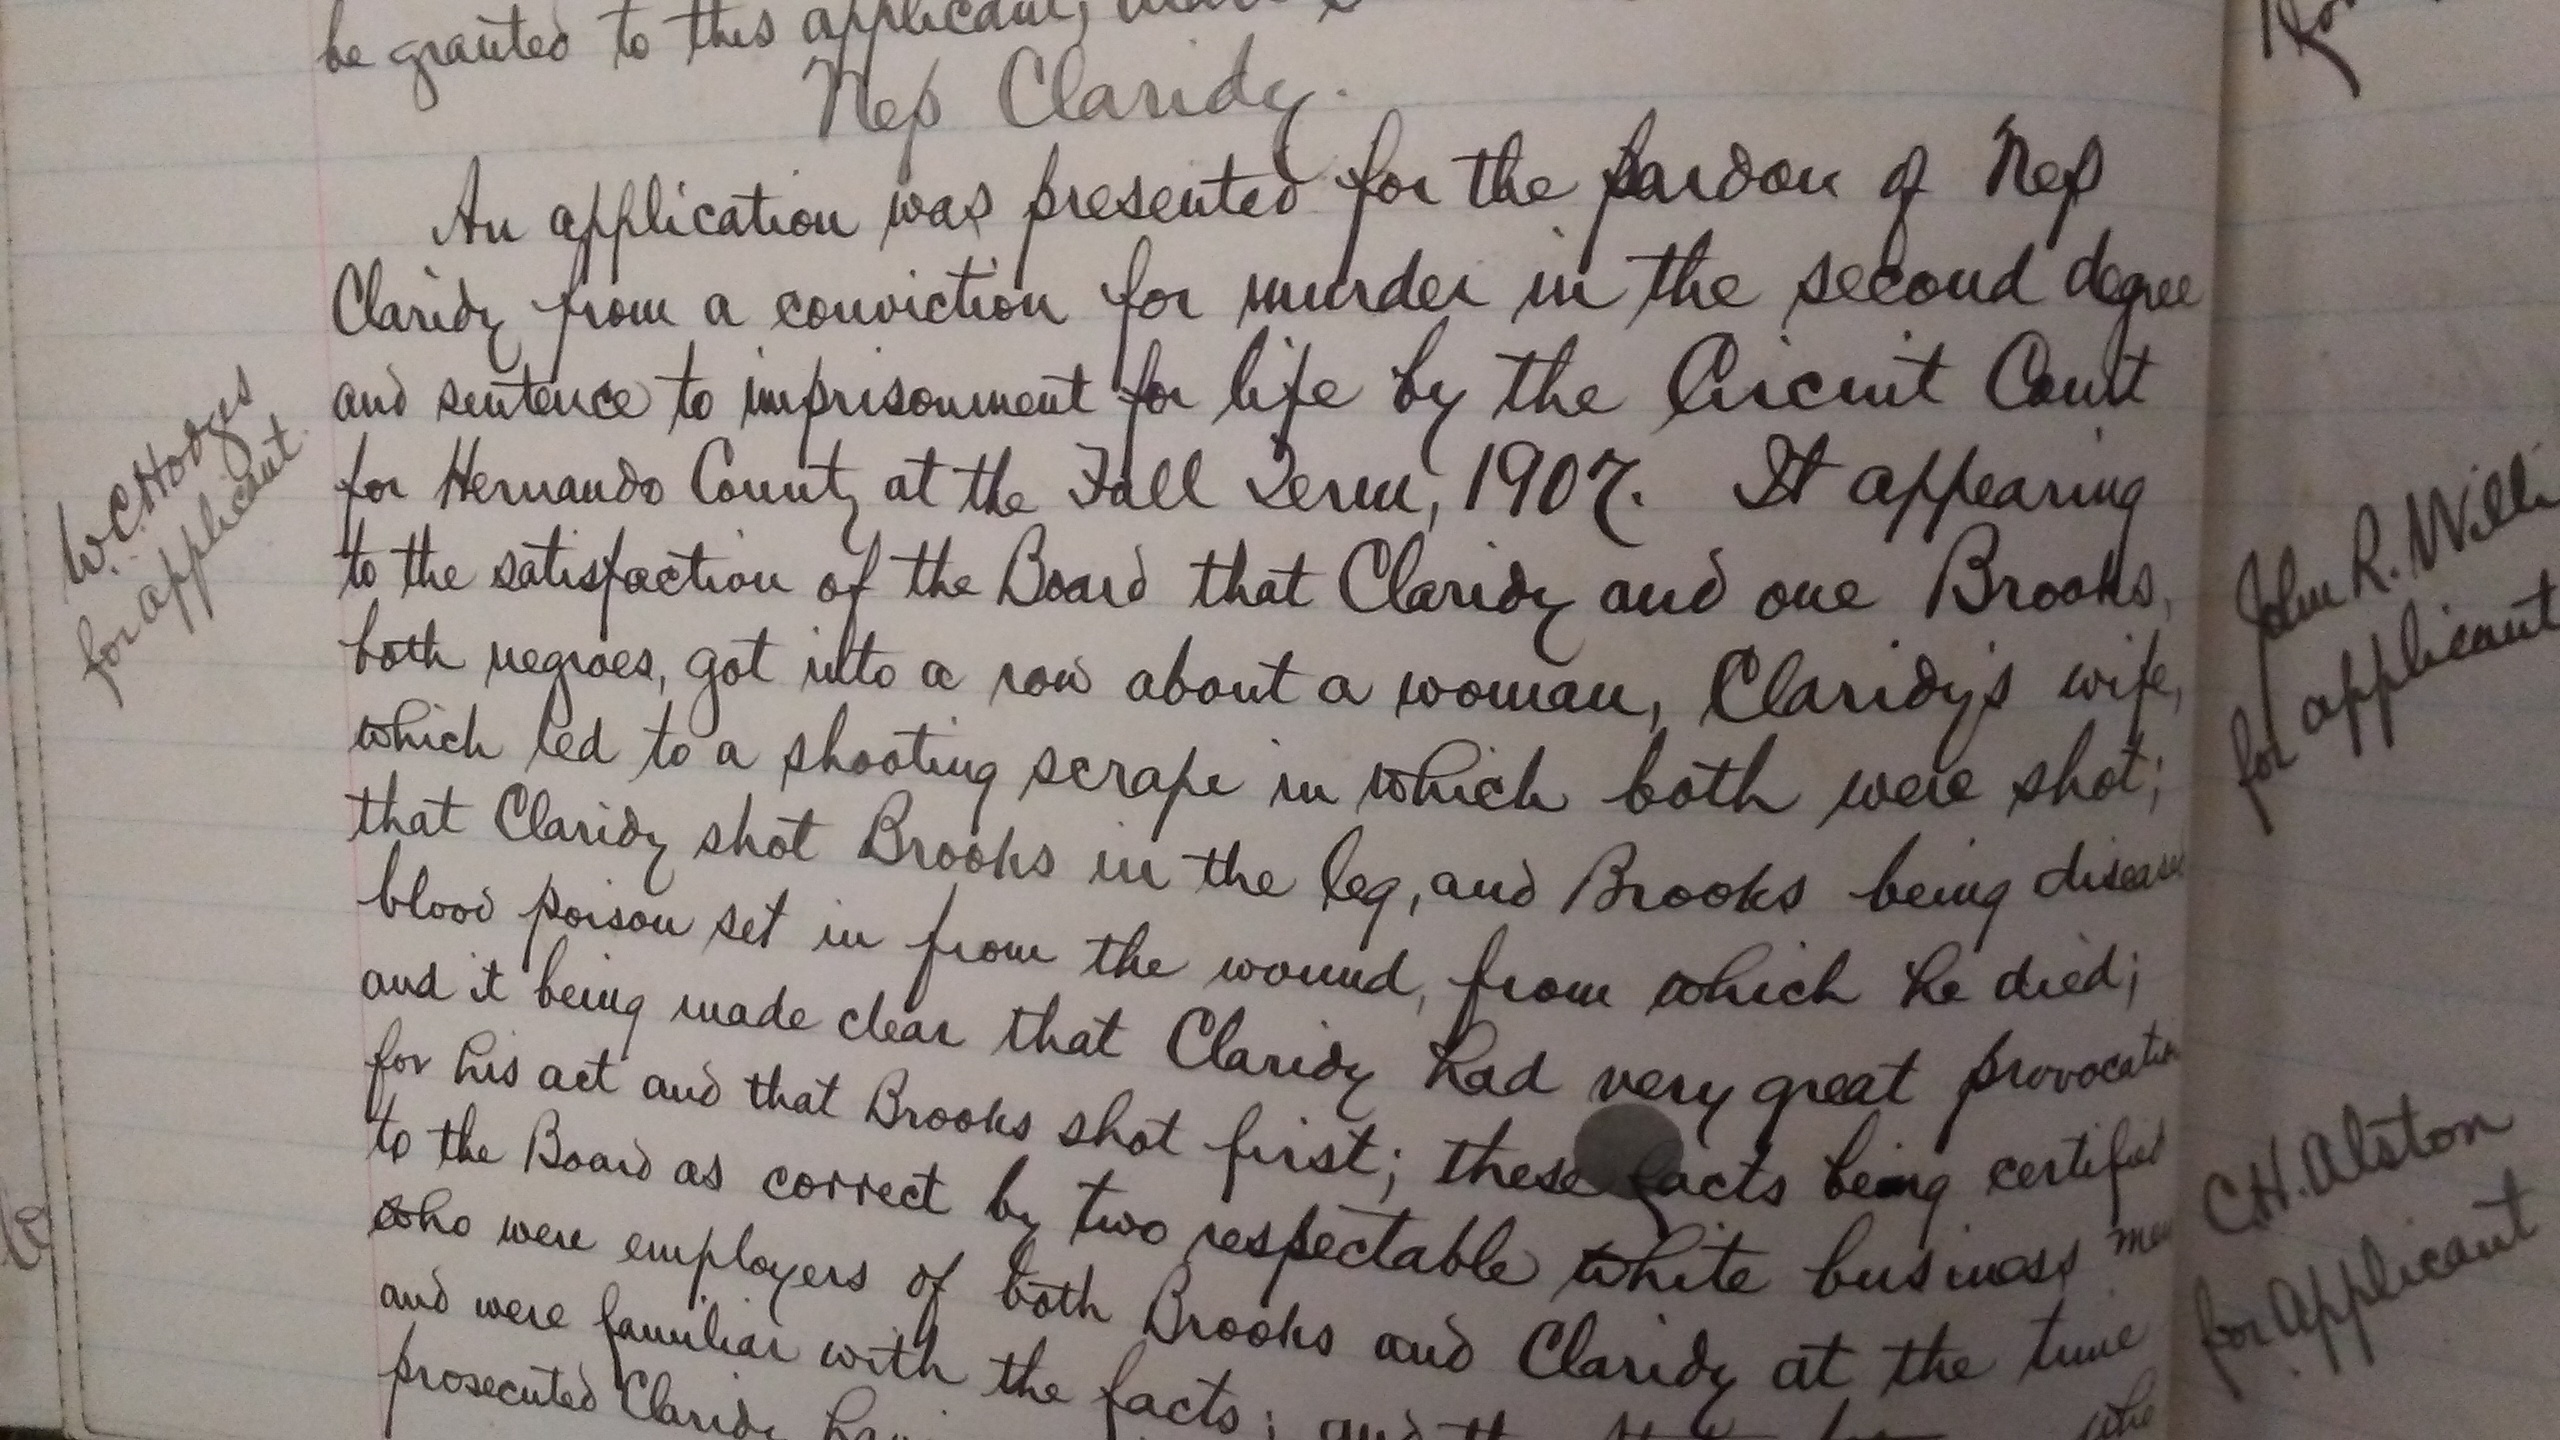 be granted to this applicant,
Nep Claridy.
An application was presented for the pardon of Nep
Claridy from a conviction for murder in the second degree
and sentence to imprisonment for life by the Circuit Court
for Hernando County at the Fall Term, 1907. It appearing
to the satisfaction of the Board that Claridy and one Brooks,
both negroes, got into a row about a woman, Claridy's wife,
which led to a shooting scrape in which both were shot;
that Claridy shot Brooks in the leg, and Brooks being
blood poison set in from the wound, from which he died;
and it being made clear that Claridy had very great
for his act and that Brooks shot first; these facts being certified
to the Board as correct by two respectable white business
who were employers of both Brooks and Claridy at the time
and were familiar with the facts; and
prosecuted Claridy
for applicant
John R.
for applicant
C.H. Alston
for applicant